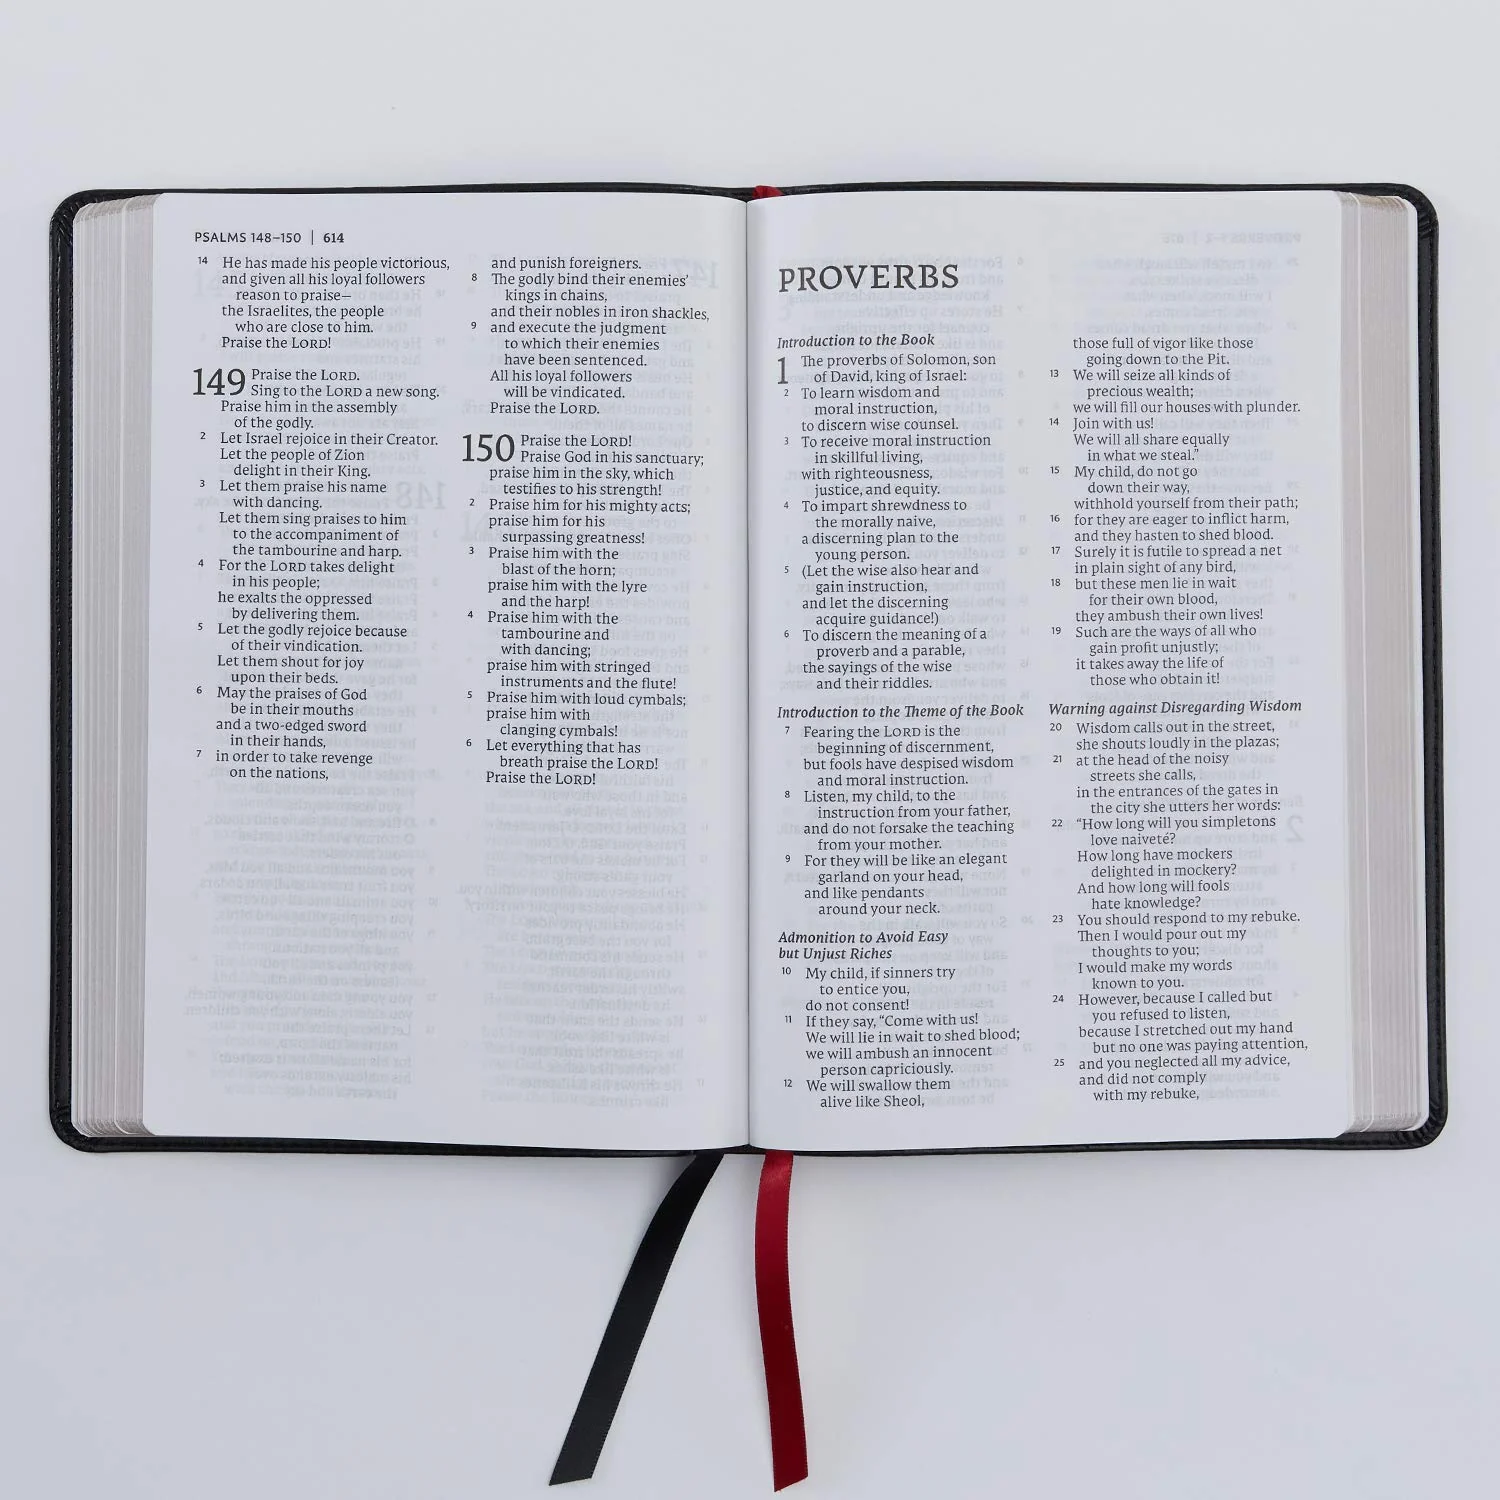 PSALMS 148–150 | 614
14 He has made his people victorious,
and given all his loyal followers
reason to praise—
the Israelites, the people
who are close to him.
Praise the LORD!
149 Praise the LORD.
Sing to the LORD a new song.
Praise him in the assembly
of the godly.
2 Let Israel rejoice in their Creator.
Let the people of Zion
delight in their King.
3 Let them praise his name
with dancing.
Let them sing praises to him
to the accompaniment of
the tambourine and harp.
4 For the LORD takes delight
in his people;
he exalts the oppressed
by delivering them.
5 Let the godly rejoice because
of their vindication.
Let them shout for joy
upon their beds.
6 May the praises of God
be in their mouths
and a two-edged sword
in their hands,
7 in order to take revenge
on the nations,
and punish foreigners.
8 The godly bind their enemies’
kings in chains,
and their nobles in iron shackles,
9 and execute the judgment
to which their enemies
have been sentenced.
All his loyal followers
will be vindicated.
Praise the LORD.
150 Praise the LORD!
Praise God in his sanctuary;
praise him in the sky, which
testifies to his strength!
2 Praise him for his mighty acts;
praise him for his
surpassing greatness!
3 Praise him with the
blast of the horn;
praise him with the lyre
and the harp!
4 Praise him with the
tambourine and
with dancing;
praise him with stringed
instruments and the flute!
5 Praise him with loud cymbals;
praise him with
clanging cymbals!
6 Let everything that has
breath praise the LORD!
Praise the LORD!
PROVERBS
Introduction to the Book
1 The proverbs of Solomon, son
of David, king of Israel:
2 To learn wisdom and
moral instruction,
to discern wise counsel.
3 To receive moral instruction
in skillful living,
with righteousness,
justice, and equity.
4 To impart shrewdness to
the morally naive,
a discerning plan to the
young person.
5 (Let the wise also hear and
gain instruction,
and let the discerning
acquire guidance!)
6 To discern the meaning of a
proverb and a parable,
the sayings of the wise
and their riddles.
Introduction to the Theme of the Book
7 Fearing the LORD is the
beginning of discernment,
but fools have despised wisdom
and moral instruction.
8 Listen, my child, to the
instruction from your father,
and do not forsake the teaching
from your mother.
9 For they will be like an elegant
garland on your head,
and like pendants
around your neck.
Admonition to Avoid Easy
but Unjust Riches
10 My child, if sinners try
to entice you,
do not consent!
11 If they say, “Come with us!
We will lie in wait to shed blood;
we will ambush an innocent
person capriciously.
12 We will swallow them
alive like Sheol,
those full of vigor like those
going down to the Pit.
13 We will seize all kinds of
precious wealth;
we will fill our houses with plunder.
14 Join with us!
We will all share equally
in what we steal.”
15 My child, do not go
down their way,
withhold yourself from their path;
16 for they are eager to inflict harm,
and they hasten to shed blood.
17 Surely it is futile to spread a net
in plain sight of any bird,
18 but these men lie in wait
for their own blood,
they ambush their own lives!
19 Such are the ways of all who
gain profit unjustly;
it takes away the life of
those who obtain it!
Warning against Disregarding Wisdom
20 Wisdom calls out in the street,
she shouts loudly in the plazas;
21 at the head of the noisy
streets she calls,
in the entrances of the gates in
the city she utters her words:
22 “How long will you simpletons
love naiveté?
How long have mockers
delighted in mockery?
And how long will fools
hate knowledge?
23 You should respond to my rebuke.
Then I would pour out my
thoughts to you;
I would make my words
known to you.
24 However, because I called but
you refused to listen,
because I stretched out my hand
but no one was paying attention,
25 and you neglected all my advice,
and did not comply
with my rebuke,